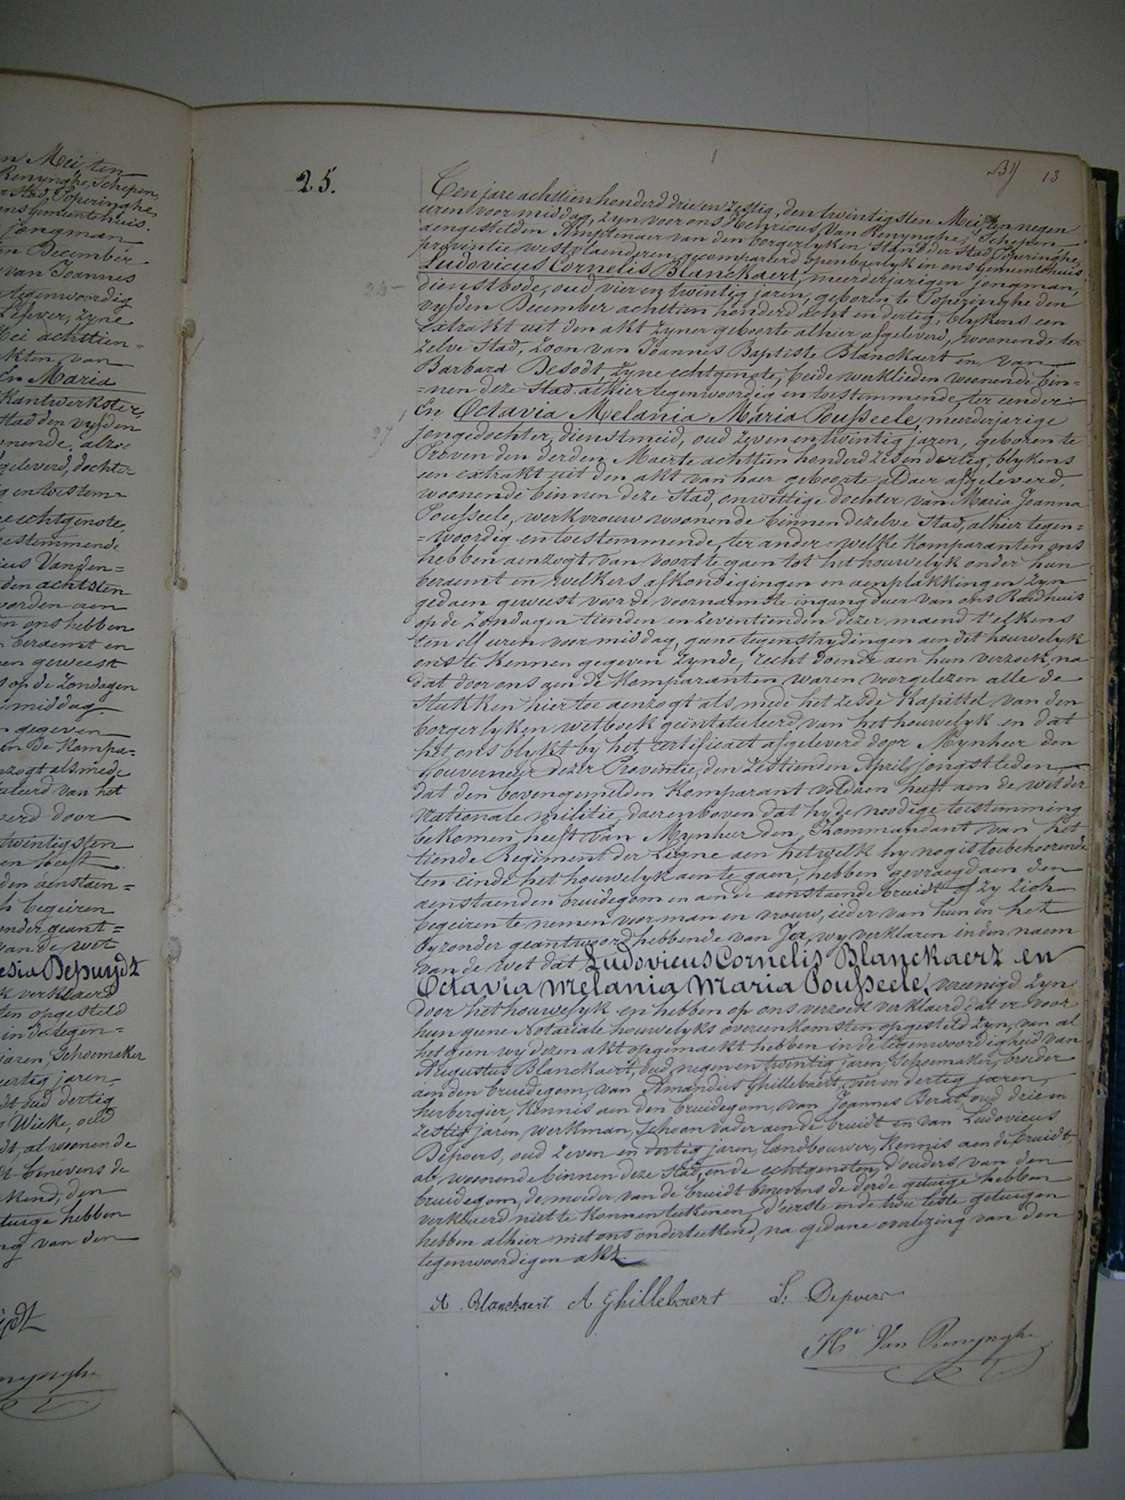 en Mei, ten
Renynghe, Schepen
Stad Poperinghe,
ons Gemeentehuis
jongman
en December
van Joannes
tegenwoordig
Lepver, zyne
Mei achttien=
akten van
En Maria
Kantwerkster,
stad den vyfden
woonende, alzoo
geleverd, dochter
ig en toestem=
echtgenote,
toestemmende
ius Vanden=
den achtsten
worden aen
en ons hebben
beraemt en
en geweest
s op de zondagen
rmiddag
n gegeven
de Kompa=
nzogt als mede
tuleerd van het
verd door
twintigsten
en heeft
den aenstaen=
h begeiren
onder geant=
van de wet
esia Depuydt
k verklaerd
ten opgesteld
in de tegen=
jaren, Schoemaker
eertig jaren
dt oud dertig
Wieke, oud
dt, al woonende
dt benevens de
kend, den
etuige hebben
ng van den
25.
By 13
Ten jare achttien honderd drie en zestig, den twintigsten Mei, ten negen
uren voor middag, zyn voor ons Henricus Van Renynghe, Schepen
aengestelden Amptenaer van den borgerlyken stand der Stad Poperinghe,
provintie westvlaenderen, gecompareerd openbaerlyk in ons Gemeentehuis
Ludovicus Cornelis Blanckaert, meerderjarigen jongman,
dienstbode, oud vier en twintig jaren, geboren te Poperinghe den
vyfden December achttien honderd acht en dertig, blykens een
extrakt uit den akt zyner geboorte alhier afgeleverd, woonende ter
zelve Stad, zoon van Joannes Baptiste Blanckaert en van
Barbara Desodt, zyne echtgenote, beide werklieden woonende bin=
=nen deze Stad alhier tegenwoordig en toestemmende, ter eender
En Octavia Melania Maria Pousseele, meerderjarige
jongedochter, dienstmeid, oud zeven en twintig jaren, geboren te
Proven den derden Maerte achttien honderd zes en dertig, blykens
een extrakt uit den akt van haer geboorte aldaer afgeleverd,
woonende binnen deze Stad, onwettige dochter van Maria Joanna
Pousseele, werkvrouw woonende binnen dezelve Stad, alhier tegen=
=woordig en toestemmende, ter ander welke Komparanten ons
hebben aenzogt van voort te gaen tot het houwelyk onder hun
beraemt en welkers afkondigingen en aenplakkingen zyn
gedaen geweest voor de voornaemste ingang deur van ons Raedhuis
op de zondagen tienden en zeventienden dezer maend t'elkens
ten elf uren voor middag, gene tegenstrydingen aen dit houwelyk
ons te kennen gegeven zynde, recht doende aen hun verzoek, na
dat door ons aen de Komparanten waren voorgelezen alle de
stukken hier toe aenzogt als mede het zesde Kapittel van den
borgerlyken wetboek geintituleerd van het houwelyk en dat
het ons blykt by het certificaet afgeleverd door Mynheer den
Gouverneur dezer Provintie, den zestienden April jongstleden
dat den bovengemelden Komparant voldaen heeft aen de wet der
nationale militie, daerenboven dat hy de noodige toestemming
bekomen heeft van Mynheer den Kommandant van het
tiende Regiment der Ligne aen hetwelk hy nog is toebehoorende
ten einde het houwelyk aen te gaen, hebben gevraegd aen den
aenstaenden bruidegom en aen de aenstaende bruidt of zy zich
begeiren te nemen voor man en vrouw, ieder van hun in het
byzonder geantwoord hebbende van Ja, wy verklaren in den naem
van de wet dat Ludovicus Cornelis Blanckaert en
Octavia Melania Maria Pousseele, vereenigd zyn
door het houwelyk en hebben op ons verzoek verklaerd dat er voor
hun gene Notariale houwelyks overeenkomsten opgesteld zyn, van al
het gien wy dezen akt opgemaekt hebben in de tegenwoordigheid van
Augustus Blanckaert, oud negen en twintig jaren, Schoemaker, broeder
aen den bruidegom, van Amandus Ghillebaert, vier in dertig jaren,
herbergier, Kennis aen den bruidegom, van Joannes Berat, oud drie en
zestig jaren, werkman, schoon vader aen de bruidt en van Ludovicus
Depoers, oud zeven en dertig jaren, landbouwer, Kennis aen de bruidt
al woonende binnen deze stad, en de echtgenoten, d'ouders van den
bruidegom, de moeder van de bruidt benevens de derde getuige hebben
verklaerd niet te konnen teekenen, d'eerste en de twee leste getuigen
hebben alhier met ons onderteekend, na gedane overlezing van den
tegenwoordigen akt.
A. Blanckaert A Ghillebaert L: Depoers
Hr Van Renynghe